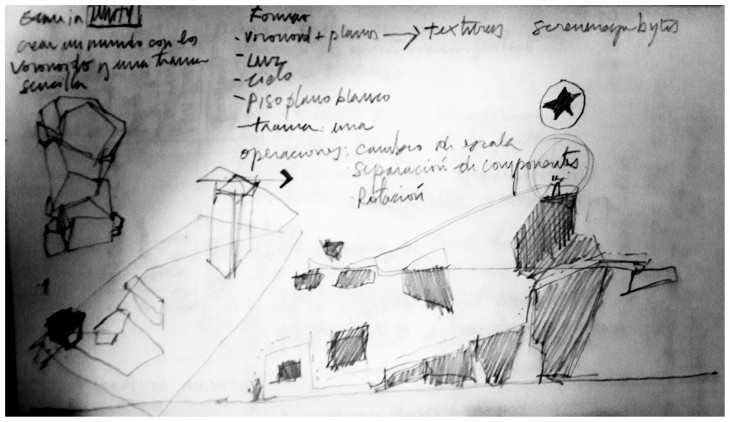 UNITY
crear un mundo con los
voronoids y una trama
sencilla
Formas
- voronoid + planos → texturas
- Luz
- Cielo
- Piso plano blanco
- trama: una
operaciones: cambio de escala
separación de componentes
Rotación